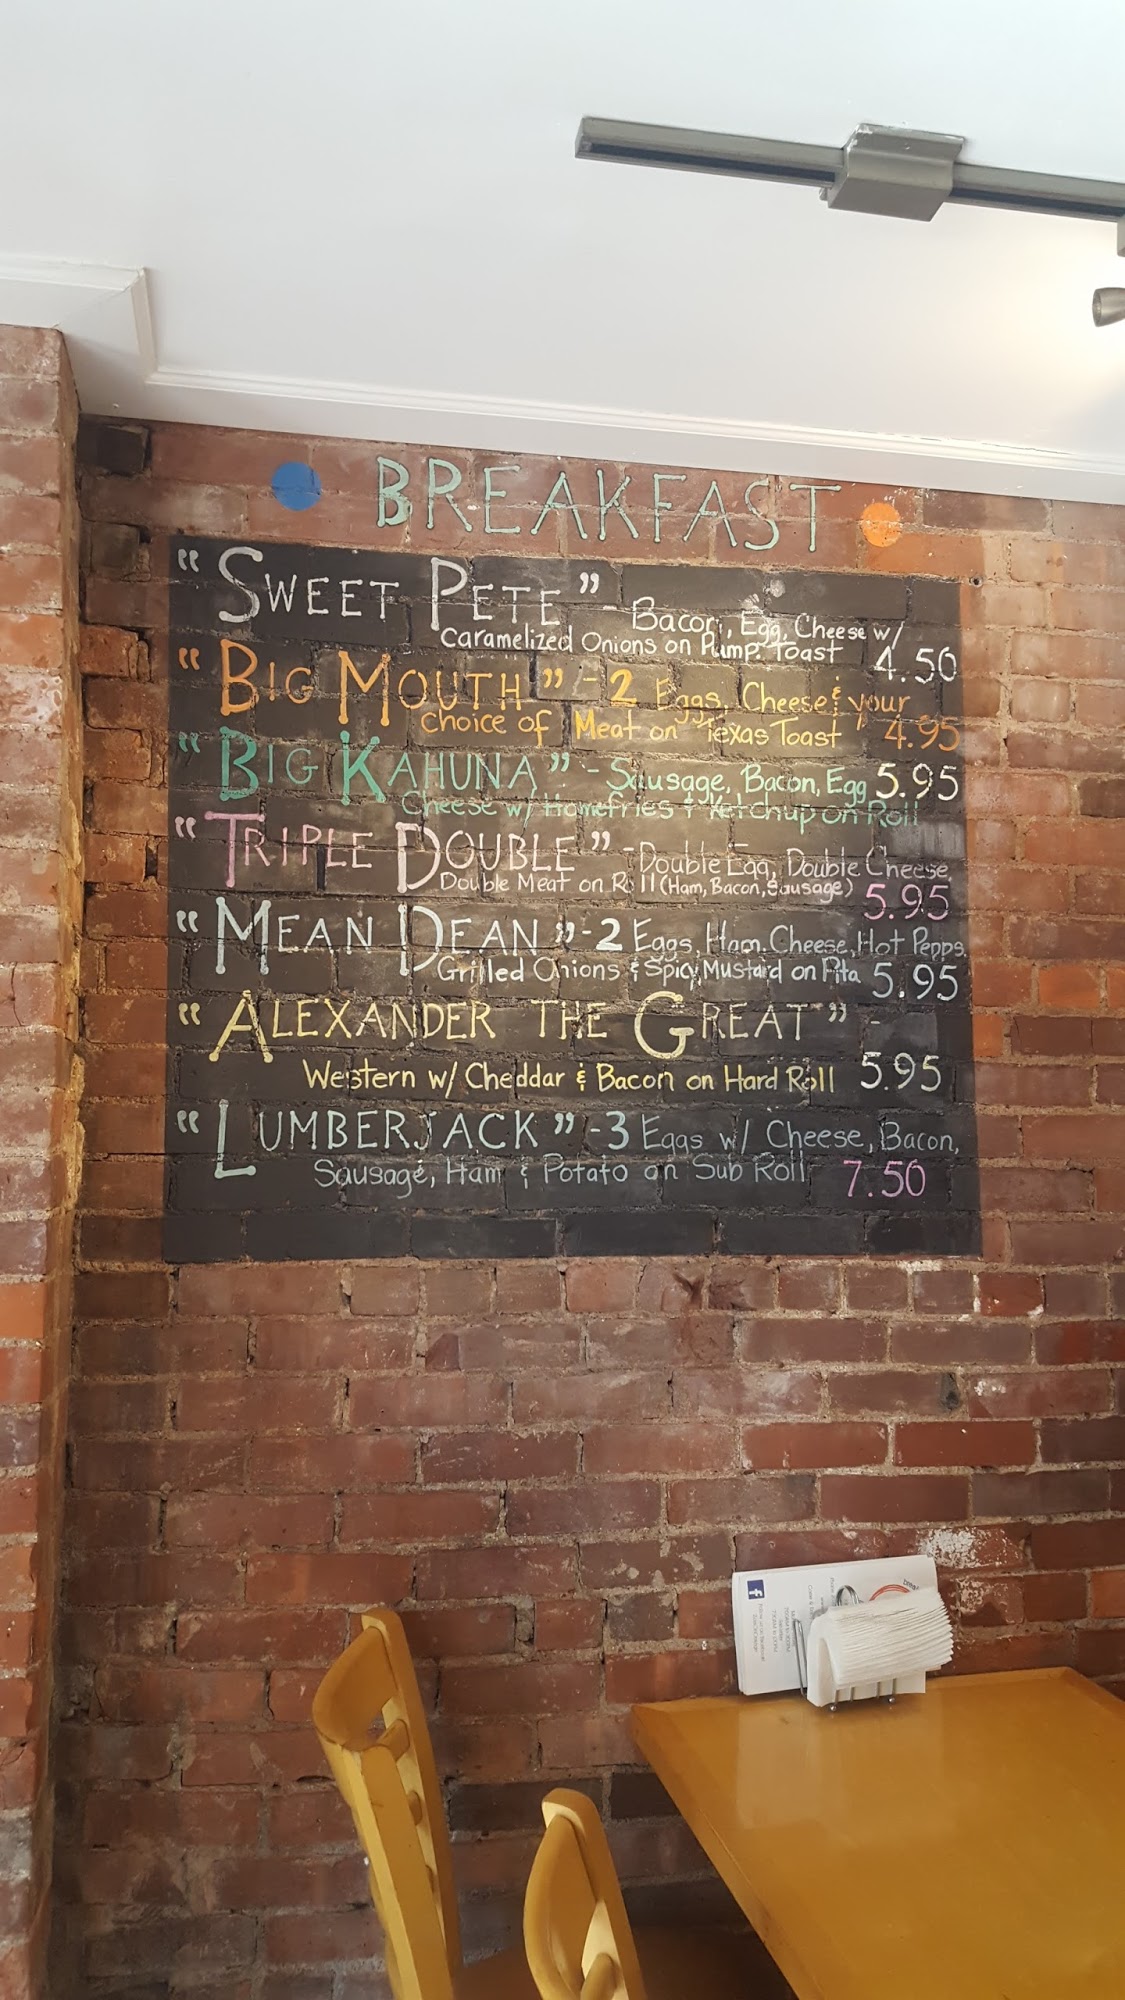 BREAKFAST
"SWEET PETE" - Bacon, Egg, Cheese w/
Caramelized Onions on Pump. Toast 4.50
"BIG MOUTH" - 2 Eggs, Cheese & your
choice of Meat on "Texas Toast" 4.95
"BIG KAHUNA" - Sausage, Bacon, Egg 5.95
Cheese w/ Homefries & Ketchup on Roll
"TRIPLE DOUBLE" - Double Egg, Double Cheese
Double Meat on Roll (Ham, Bacon, Sausage) 5.95
"MEAN DEAN" - 2 Eggs, Ham, Cheese, Hot Pepps
Grilled Onions & Spicy Mustard on Pita 5.95
"ALEXANDER THE GREAT" -
Western w/ Cheddar & Bacon on Hard Roll 5.95
"LUMBERJACK" - 3 Eggs w/ Cheese, Bacon,
Sausage, Ham & Potato on Sub Roll 7.50